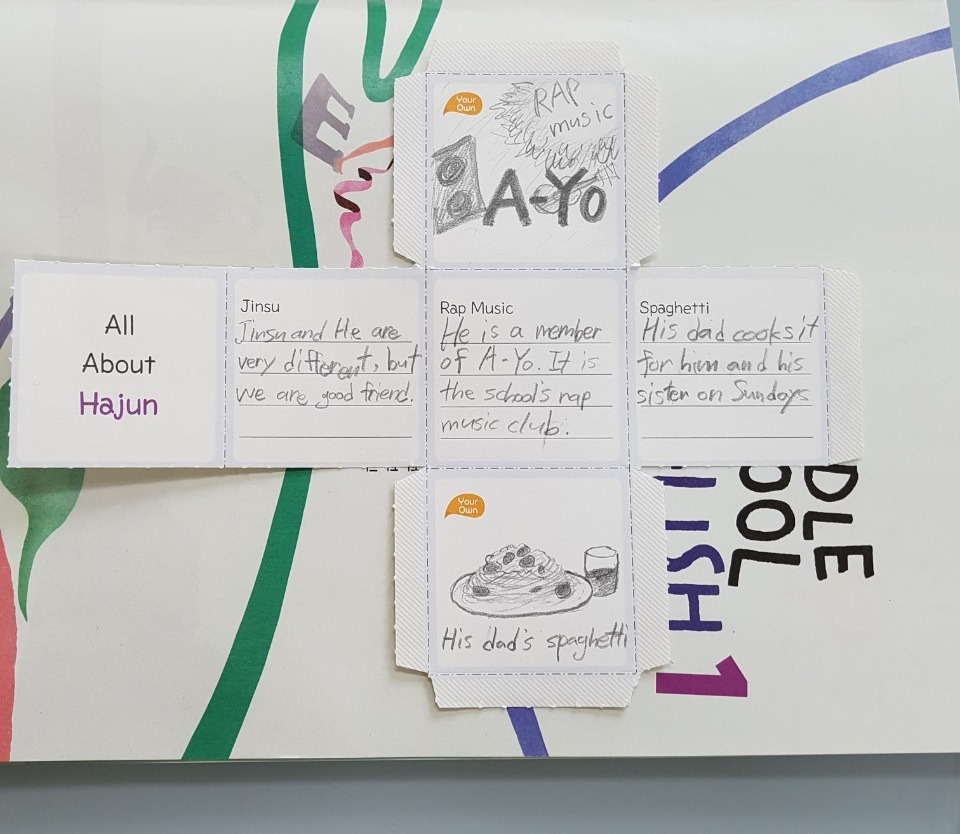 Your
Own
RAP
music
A-Yo
E
All
About
Hajun
Jinsu
Jinsu and He are
very different, but
we are good friend.
Rap Music
He is a member
of A-Yo. It is
the school's rap
music club.
Spaghetti
His dad cooks it
for him and his
sister on Sundays
Your
Own
His dad's spaghetti
DLE
OOL
LISH 1